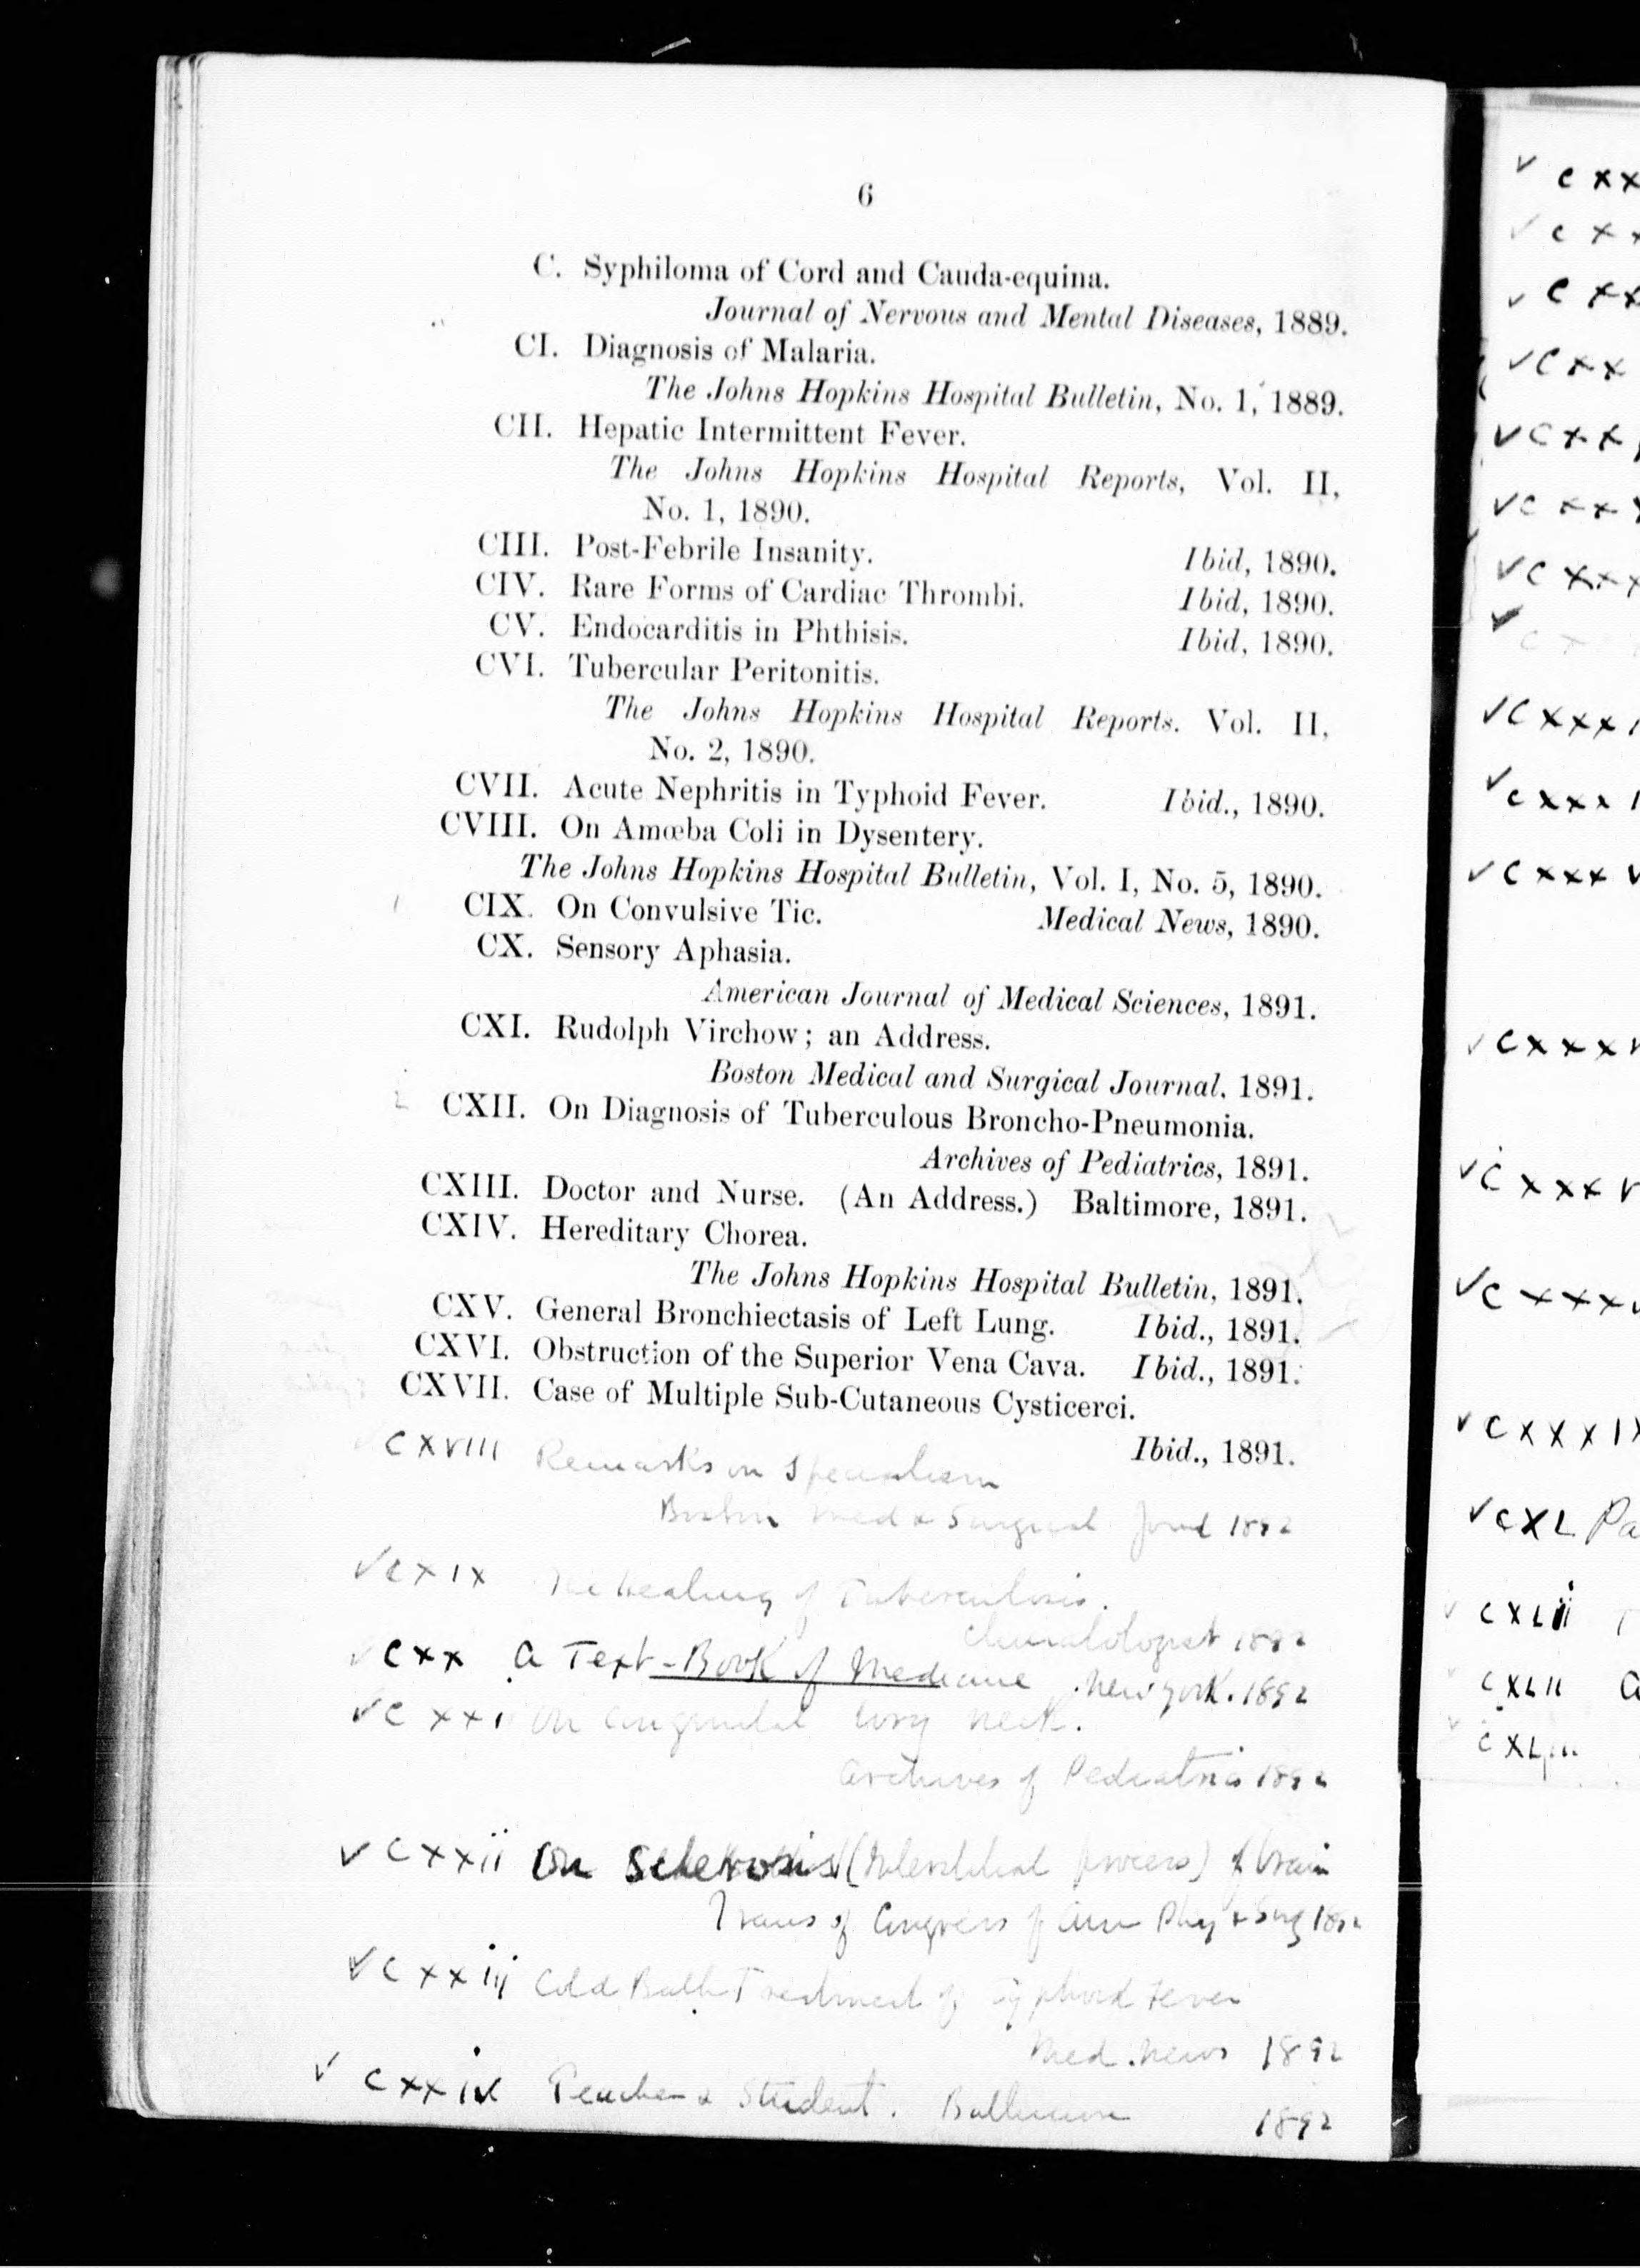 6
C. Syphiloma of Cord and Cauda-equina.
Journal of Nervous and Mental Diseases, 1889.
CI. Diagnosis of Malaria.
The Johns Hopkins Hospital Bulletin, No. 1, 1889.
CII. Hepatic Intermittent Fever.
The Johns Hopkins Hospital Reports, Vol. II,
No. 1, 1890.
CIII. Post-Febrile Insanity. Ibid, 1890.
CIV. Rare Forms of Cardiac Thrombi. Ibid, 1890.
CV. Endocarditis in Phthisis. Ibid, 1890.
CVI. Tubercular Peritonitis.
The Johns Hopkins Hospital Reports. Vol. II,
No. 2, 1890.
CVII. Acute Nephritis in Typhoid Fever. Ibid., 1890.
CVIII. On Amœba Coli in Dysentery.
The Johns Hopkins Hospital Bulletin, Vol. I, No. 5, 1890.
CIX. On Convulsive Tic. Medical News, 1890.
CX. Sensory Aphasia.
American Journal of Medical Sciences, 1891.
CXI. Rudolph Virchow; an Address.
Boston Medical and Surgical Journal. 1891.
CXII. On Diagnosis of Tuberculous Broncho-Pneumonia.
Archives of Pediatrics, 1891.
CXIII. Doctor and Nurse. (An Address.) Baltimore, 1891.
CXIV. Hereditary Chorea.
The Johns Hopkins Hospital Bulletin, 1891.
CXV. General Bronchiectasis of Left Lung. Ibid., 1891.
CXVI. Obstruction of the Superior Vena Cava. Ibid., 1891.
CXVII. Case of Multiple Sub-Cutaneous Cysticerci.
Ibid., 1891.
CXVIII Remarks on Specialism
Boston Med & Surgical Journl 1892
✓ CXIX The Healing of Tuberculosis.
Climatologist 1892
✓ CXX A Text-Book of Medicine. New York. 1892
✓ CXXI On Congenital Wry Neck.
Archives of Pediatrics 1892
✓ CXXii On Sclerosis (        process) of brain
Trans of Congress of Am Phy & Surg 1892
✓ CXXiij Cold Bath Treatment of Typhoid Fever
Med. News 1892
✓ CXXiv Teacher & Student. Baltimore 1892
✓ CXL Pa
CXLii
CXLII
CXLIII